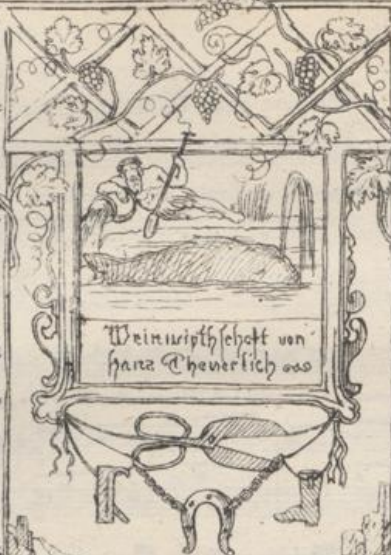 Weinwirthschaft von
Hans Theuerlich